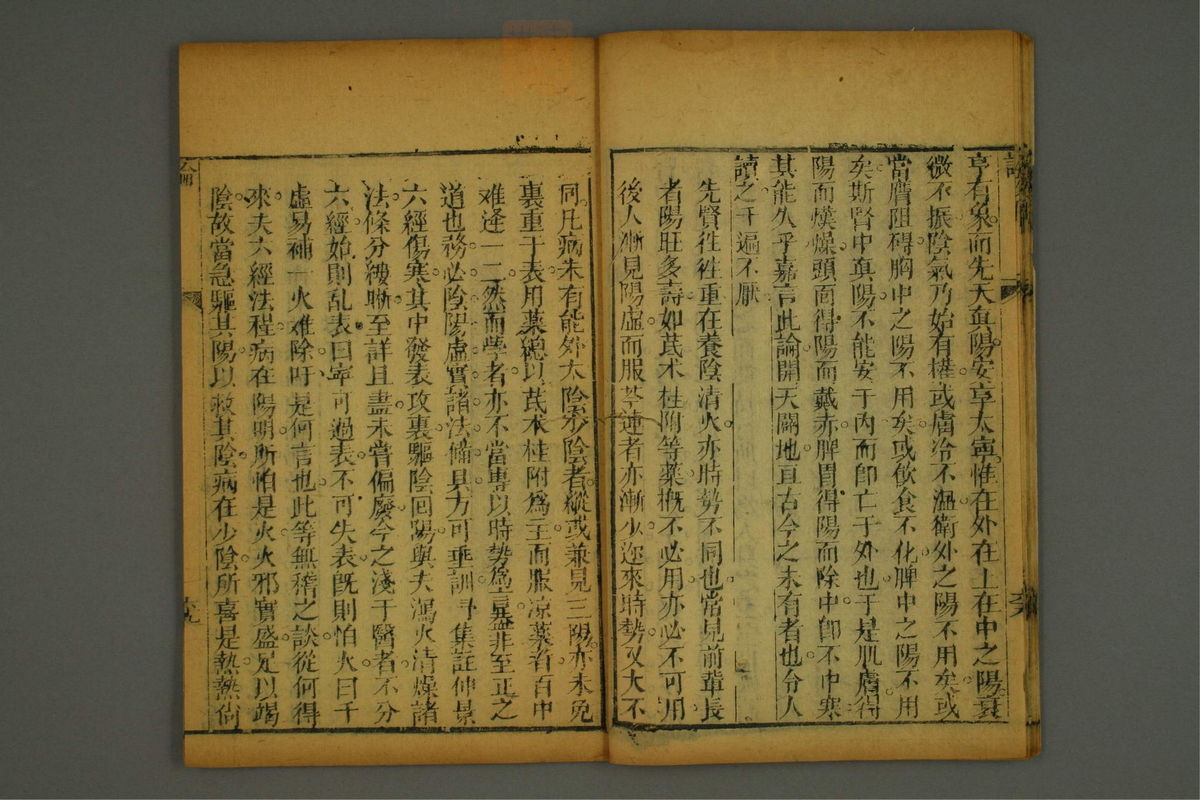 亨有象而先天真陽安享太寧惟在外在上在中之陽衰
微不振陰氣乃始有權或膚冷不溫衛外之陽不用矣或
當膺阻碍胸中之陽不用矣或飲食不化脾中之陽不用
矣斯賢中真陽不能安于內而卽亡于外也于是肌膚得
陽而熯燥頭面得陽而戴赤脾胃得陽而除中卽不中寒
其能久乎嘉言此論開天闢地亘古今之未有者也令人
讀之千遍不厭
先賢徃徃重在養陰清火亦時勢不同也常見前輩長
者陽旺多壽如芪术桂附等藥槪不必用亦必不可用
後人漸見陽虛而服芩連者亦漸少迩來時勢又大不
同凡病未有能外太陰少陰者縱或兼見三陽亦未免
裏重于表用藥總以芪术桂附爲主而服凉藥者百中
难逢一二然而學者亦不當專以時勢爲言葢非至正之
道也務必陰陽虛實諸法備具方可垂訓 集註仲景
六經傷寒其中發表攻裏驅陰囘陽與夫瀉火清燥諸
法條分縷晰至詳且盡未嘗偏廢今之淺于醫者不分
六經始則乱表曰寧可過表不可失表旣則怕火曰千
虛易補一火难除吁是何言也此等無稽之談從何得
來夫六經法程病在陽明所怕是火火邪實盛足以竭
陰故當急驅其陽以救其陰病在少陰所喜是熱熱尙